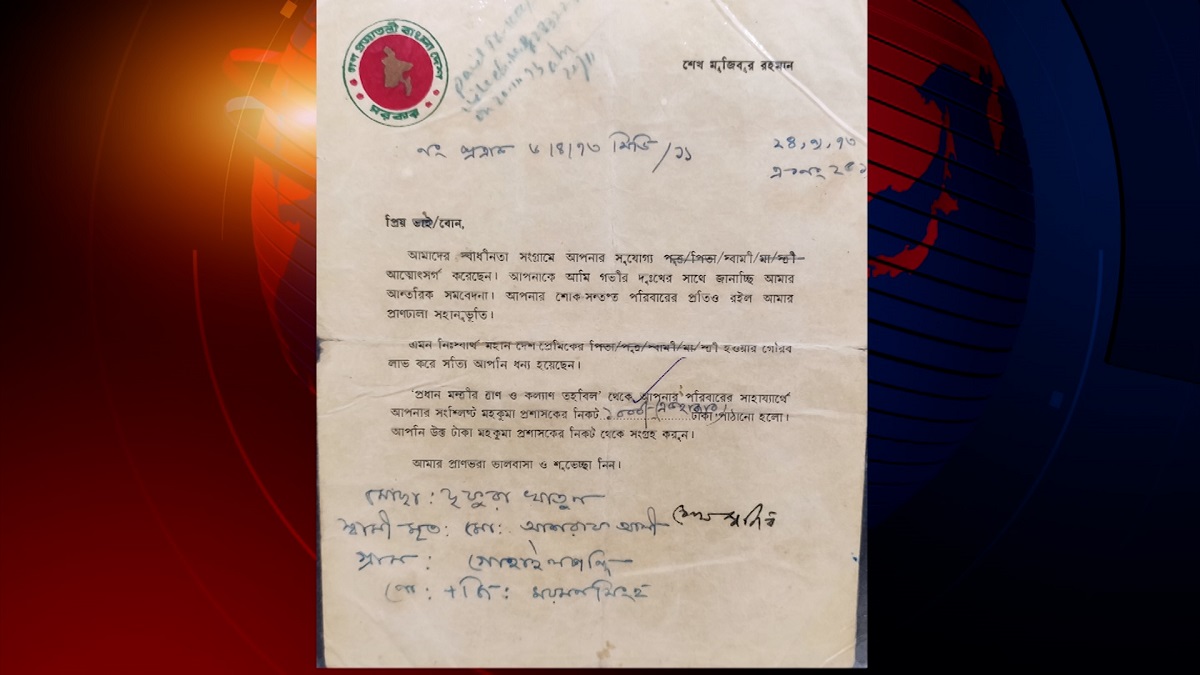 গণ প্রজাতন্ত্রী বাংলা দেশ
সরকার
শেখ মুজিবুর রহমান
নং প্রত্রাক ৬/৪/৭৩ সিডি/
প্রিয় ভাই/বোন,
আমাদের স্বাধীনতা সংগ্রামে আপনার সুযোগ্য পুত্র/পিতা/স্বামী/মা/স্ত্রী
আত্মোৎসর্গ করেছেন। আপনাকে আমি গভীর দুঃখের সাথে জানাচ্ছি আমার
আন্তরিক সমবেদনা। আপনার শোক-সন্তপ্ত পরিবারের প্রতিও রইল আমার
প্রাণঢালা সহানুভূতি।
এমন নিঃস্বার্থ মহান দেশ প্রেমিকের পিতা/পুত্র/স্বামী/মা/স্ত্রী হওয়ার গৌরব
লাভ করে সত্যি আপনি ধন্য হয়েছেন।
'প্রধান মন্ত্রীর ত্রাণ ও কল্যাণ তহবিল' থেকে আপনার পরিবারের সাহায্যার্থে
আপনার সংশ্লিষ্ট মহকুমা প্রশাসকের নিকট ১০০০/- টাকা পাঠানো হলো।
আপনি উক্ত টাকা মহকুমা প্রশাসকের নিকট থেকে সংগ্রহ করুন।
আমার প্রাণভরা ভালবাসা ও শুভেচ্ছা নিন।
মোছা: খাতুন
শেখ মুজিব
স্বামী মৃত: মো: আশরাফ আলী
গ্রাম:
পো: + জি: ময়মনসিংহ